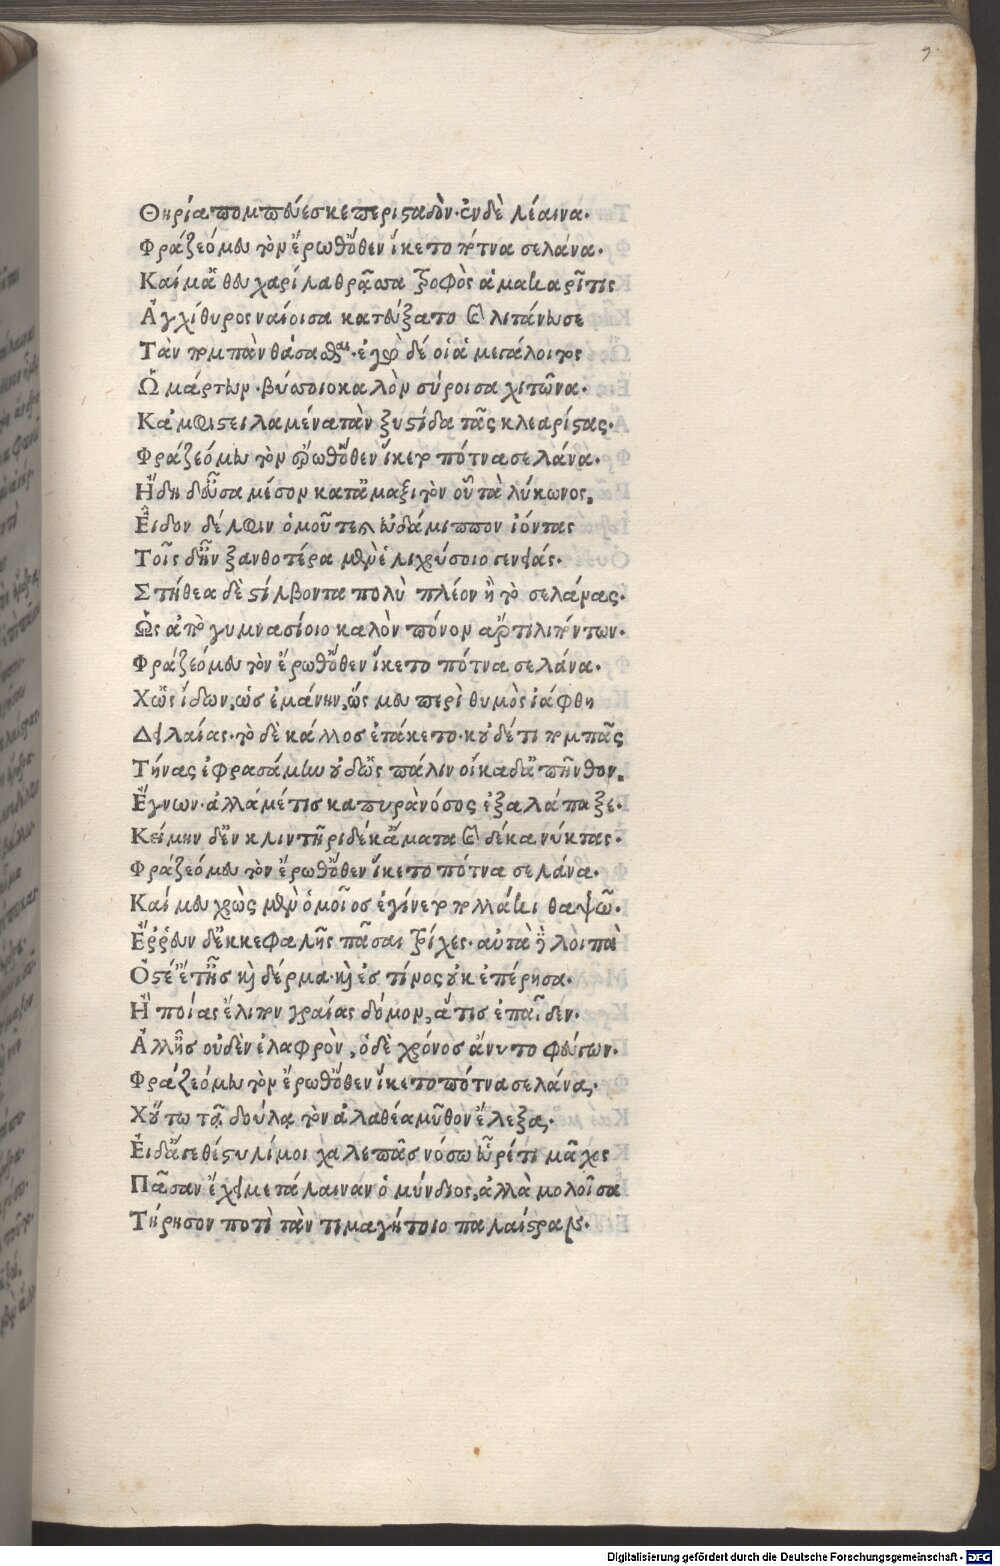 9
Θηρία πομπεύεσκε περισταδὸν. ἐν δὲ λέαινα.
Φράζεό μευ τὸν ἔρωθ' ὅθεν ἵκετο πότνα σελάνα.
Καί μ' ἁ θευχαρίλα θρᾷσσα τροφὸς ἁ μακαρῖτις
Ἀγχίθυρος ναίοισα κατεύξατο καὶ λιτάνευσε
Τὰν πομπὰν θάσασθαι. ἐγὼ δέ οἱ ἁ μεγάλοιτος
Ὡμάρτευν. βύσσοιο καλὸν σύροισα χιτῶνα.
Κἀμφιστειλαμένα τὰν ξυστίδα τᾶς κλεαρίστας.
Φράζεό μευ τὸν ἔρωθ' ὅθεν ἵκετο πότνα σελάνα.
Ἤδη δ' εὖσα μέσον κατ' ἄμαξιτὸν οὗ τὰ λύκωνος.
Εἶδον δέλφιν ὁμοῦ τε καὶ εὐδάμιππον ἰόντας
Τοῖς δ' ἦν ξανθοτέρα μὲν ἑλιχρύσοιο γενειάς.
Στήθεα δὲ στίλβοντα πολὺ πλέον ἢ τὸ σελάνας.
Ὡς ἀπὸ γυμνασίοιο καλὸν πόνον ἄρτι λιπόντων.
Φράζεό μευ τὸν ἔρωθ' ὅθεν ἵκετο πότνα σελάνα.
Χὡς ἴδων, ὡς ἐμάνην, ὥς μευ περὶ θυμὸς ἰάφθη
Δειλαίας. τὸ δὲ κάλλος ἐτάκετο. κ' οὐδέ τι πομπᾶς
Τήνας ἐφρασάμευ οὐδ' ὡς πάλιν οἴκαδ' ἀπῆνθον.
Ἔγνων. ἀλλά μέ τις καπυρὰ νόσος ἐξαλάπαξε.
Κείμην δ' ἐν κλιντῆρι δέκ' ἄματα καὶ δέκα νύκτας.
Φράζεό μευ τὸν ἔρωθ' ὅθεν ἵκετο πότνα σελάνα.
Καί μευ χρὼς μὲν ὁμοῖος ἐγίνετο πολλάκι θάψῳ.
Ἔρρευν δ' ἐκ κεφαλῆς πᾶσαι τρίχες. αὐτὰ δὲ λοιπὰ
Ὀστέ' ἔτ' ἦς καὶ δέρμα. καὶ ἐς τίνος οὐκ ἐπέρησα.
Ἢ ποίας ἔλιπον γραίας δόμον, ἅτις ἐπᾷδεν.
Ἀλλ' ἦς οὐδὲν ἐλαφρὸν, ὁ δὲ χρόνος ἄνυτο φεύγων.
Φράζεό μευ τὸν ἔρωθ' ὅθεν ἵκετο πότνα σελάνα.
Χ' οὕτω τᾷ δούλᾳ τὸν ἀλαθέα μῦθον ἔλεξα.
Εἰ δ' ἄγε θέστυλί μοι χαλεπᾶς νόσω εὗρέ τι μᾶχος
Πᾶσαν ἔχει με τάλαιναν ὁ μύνδιος, ἀλλὰ μολοῖσα
Τήρησον ποτὶ τὰν τιμαγήτοιο παλαίστραν.
Digitalisierung gefördert durch die Deutsche Forschungsgemeinschaft - DFG